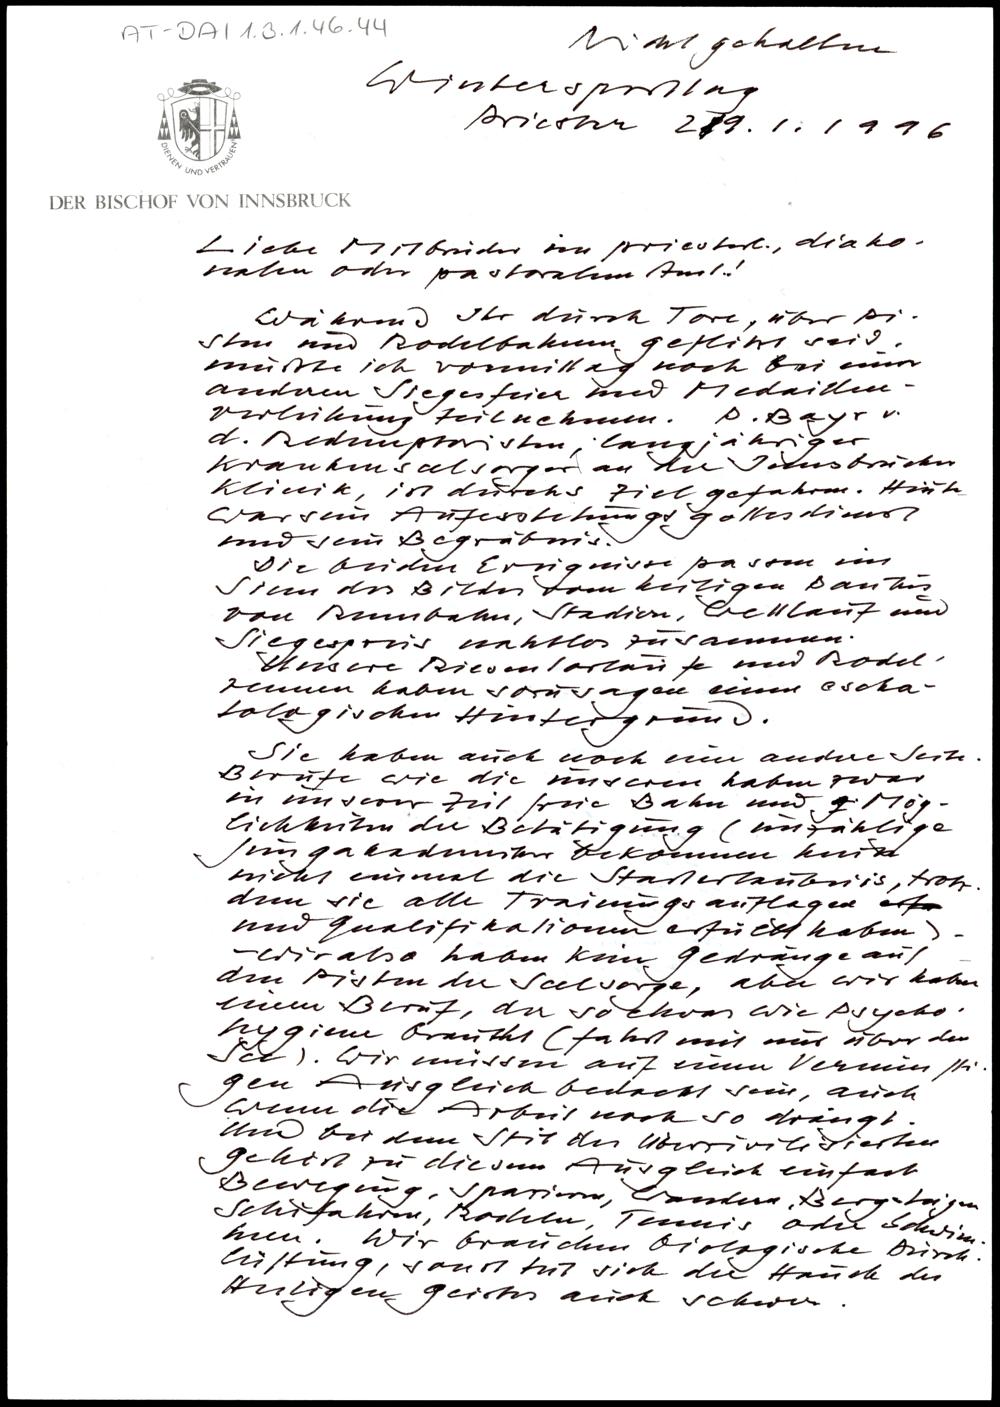 AT-DAI 1.3.1.46.44
Nicht gehalten
Wintersporttag
Priester 29.1.1996
DIENEN UND VERTRAUEN
DER BISCHOF VON INNSBRUCK
Liebe Mitbrüder im priesterl., diako-
nalen oder pastoralen Amt!
Während Ihr durch Tore, über Pi-
sten und Rodelbahnen geflitzt seid,
mußte ich vormittag noch bei einer
anderen Siegesfeier und Medaillen-
verleihung teilnehmen. P. Bayr v.
d. Redemptoristen, langjähriger
Krankenseelsorger an der Innsbrucker
Klinik, ist durchs Ziel gefahren. Heute
war sein Auferstehungsgottesdienst
und sein Begräbnis.
Die beiden Ereignisse passen im
Sinn des Bildes vom heiligen Paulus
von Rennbahn, Stadion, Wettlauf und
Siegespreis nahtlos zusammen.
Unsere Riesentorläufe und Rodel-
rennen haben sozusagen einen escha-
tologischen Hintergrund.
Sie haben auch noch eine andere Seite.
Berufe wie die unseren haben zwar
in unserer Zeit freie Bahn und Mög-
lichkeiten der Betätigung (unzählige
Jungakademiker bekommen heute
nicht einmal die Starterlaubnis, trotz-
dem sie alle Trainingsauflagen
und Qualifikationen erfüllt haben) -
- wir also haben kein Gedränge auf
den Pisten der Seelsorge, aber wir haben
einen Beruf, der so etwas wie Psycho-
hygiene braucht (fahrt mit mir über den
See). Wir müssen auf einen Vernünfti-
gen Ausgleich bedacht sein, auch
wenn die Arbeit noch so drängt.
Und bei dem Stil des Überzivilisierten
gehört zu diesem Ausgleich einfach
Bewegung, Spazieren, Wandern, Bergsteigen
Schifahren, Rodeln, Tennis oder Schwim-
men. Wir brauchen biologische Durch-
lüftung, sonst tut sich der Hauch des
Heiligen Geistes auch schwer.